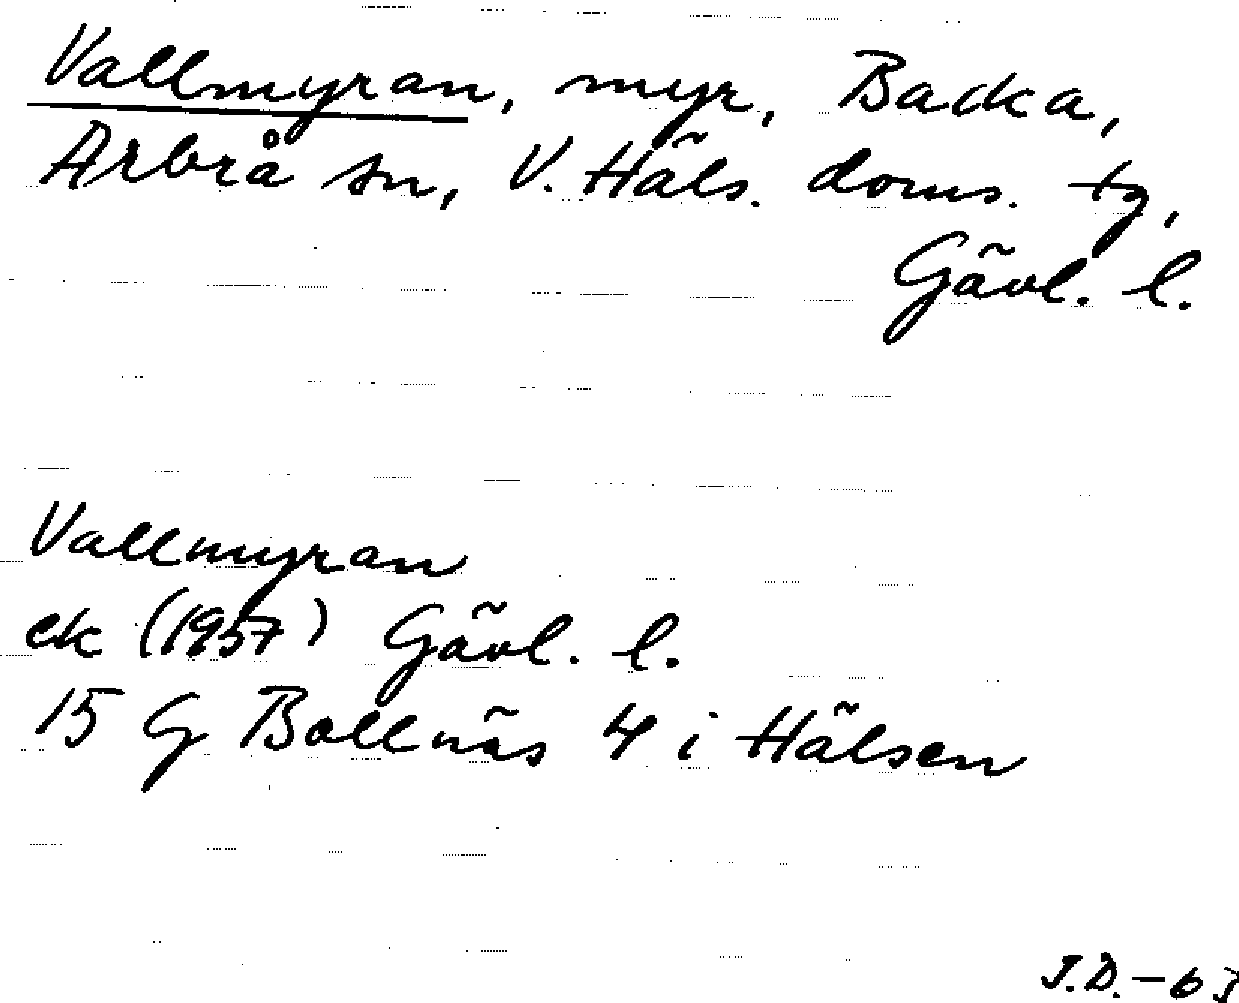 Vallmyran, myr, Backa,
Arbrå sn, V. Häls. doms. tg,
Gävl. l.
Vallmyran
ek (1957) Gävl. l.
15 G Bollnäs 4 i Hälsen
J.D. - 63